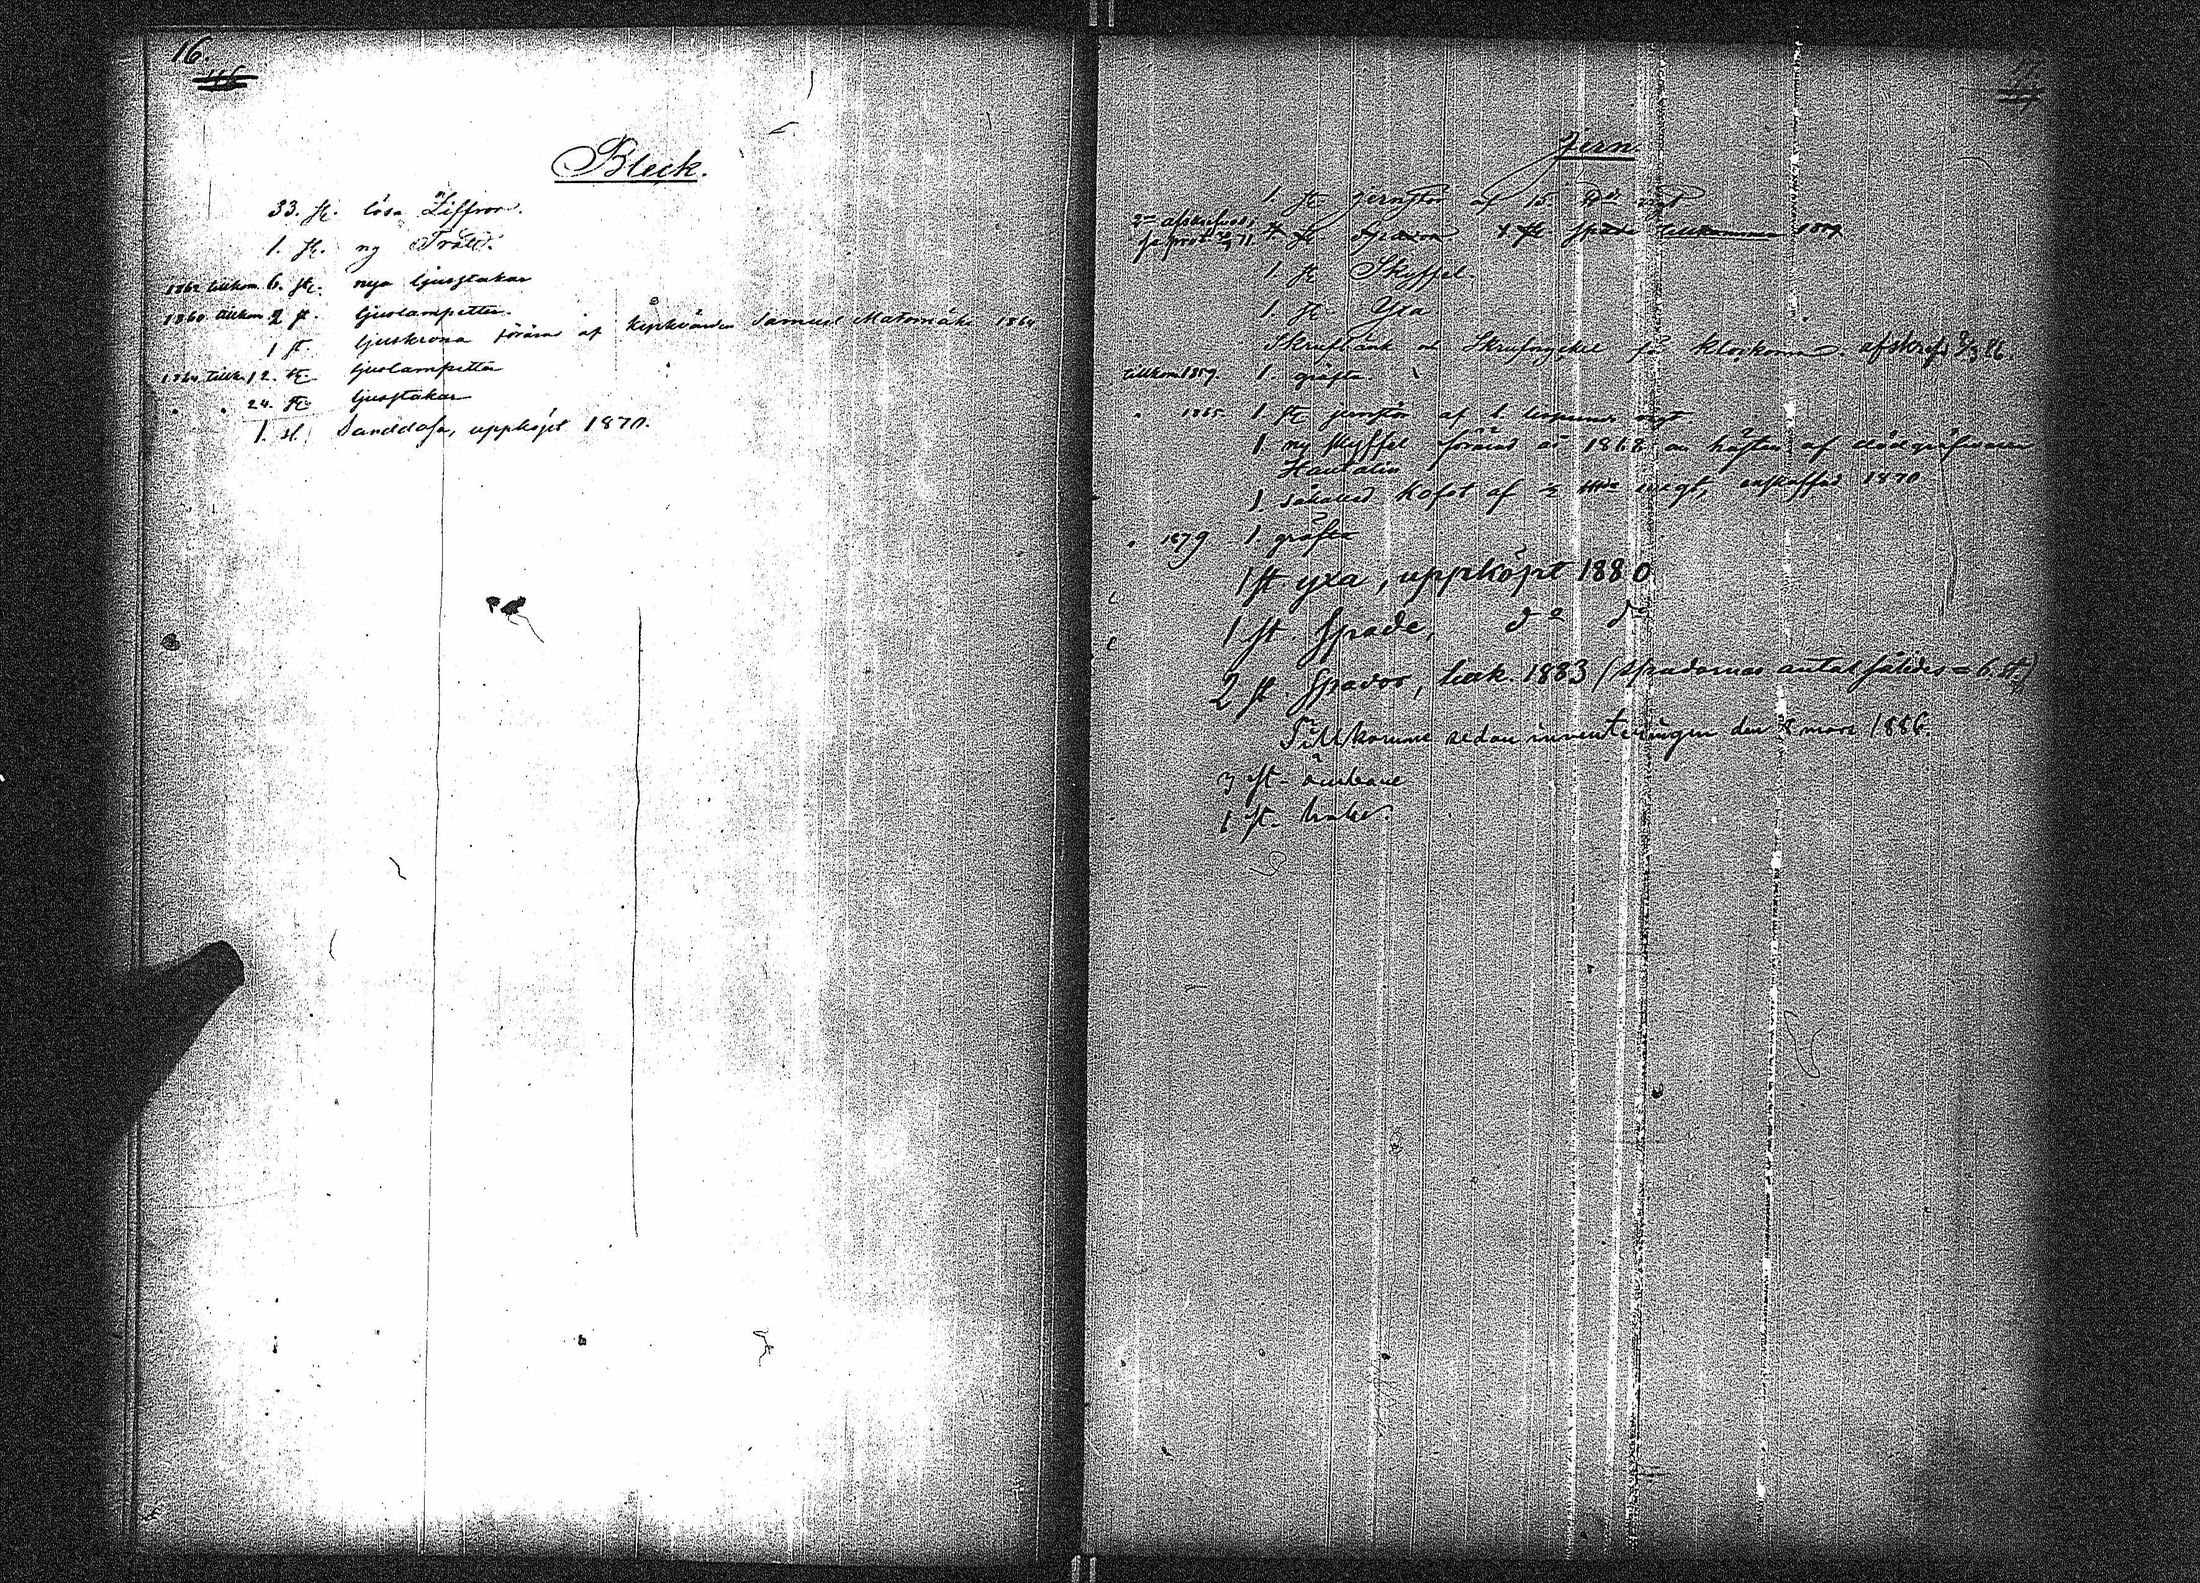 16.
Bleck.
33. st. lösa Ziffror.
1. st. ny Tratt.
1862 tillkom. 6. st. nya ljusstakar
1860 tillkom 2 st. ljuslampetter.
1 st. ljuskrona förärad af kyrkvärden Samuel 1864
1864 tillk. 12. st. ljuslampetter
" " 24. st. ljusstakar
1. st. Sanddosa, uppköpt 1870.
17.
Jern.
1. st. jernstör af 15 vigt
st. Spadar st. spade tillkommen 1859
1 st. Skyffel.
1 st. Yxa
Skrufstänk och Skrufnyckel för klockorna. afskrefs
tillkom 1859. 1. gräfta.
" 1865 1 st. jernstör af 1 vigt.
1 ny skyffel förärad år 1868 af dödgräfvaren
Hautalin
1 såkallad kofot af ½ vigt, anskaffad 1870
" 1879 1. gräfta
1 st. yxa, uppköpt 1880
1 st. Spade, do do
2 st. spador, tillk. 1883 (Spadornas antal således = 6. st.)
Tillkomne sedan inventeringen den 8 mars 1886.
3 st. ämbare
1 st. hake.